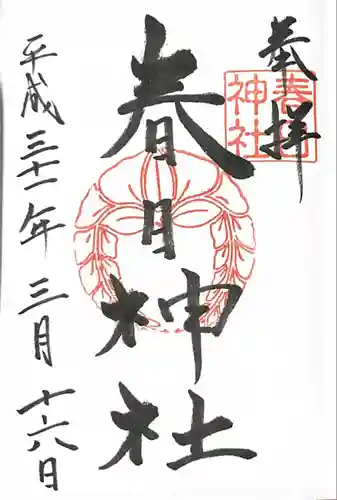 奉拝
春日神社
春日神社
平成三十一年三月十六日